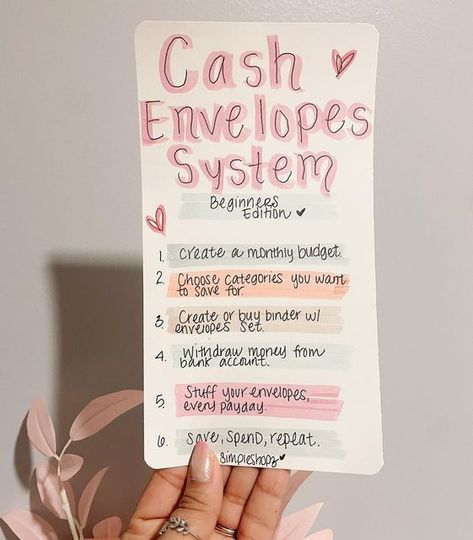 Cash
Envelopes
System
Beginners
Edition
1. Create a monthly budget.
2. Choose categories you want
to save for.
3. Create or buy binder w/
envelopes set.
4. Withdraw money from
bank account.
5. Stuff your envelopes,
every payday.
6. Save, Spend, repeat.
simpleshopz